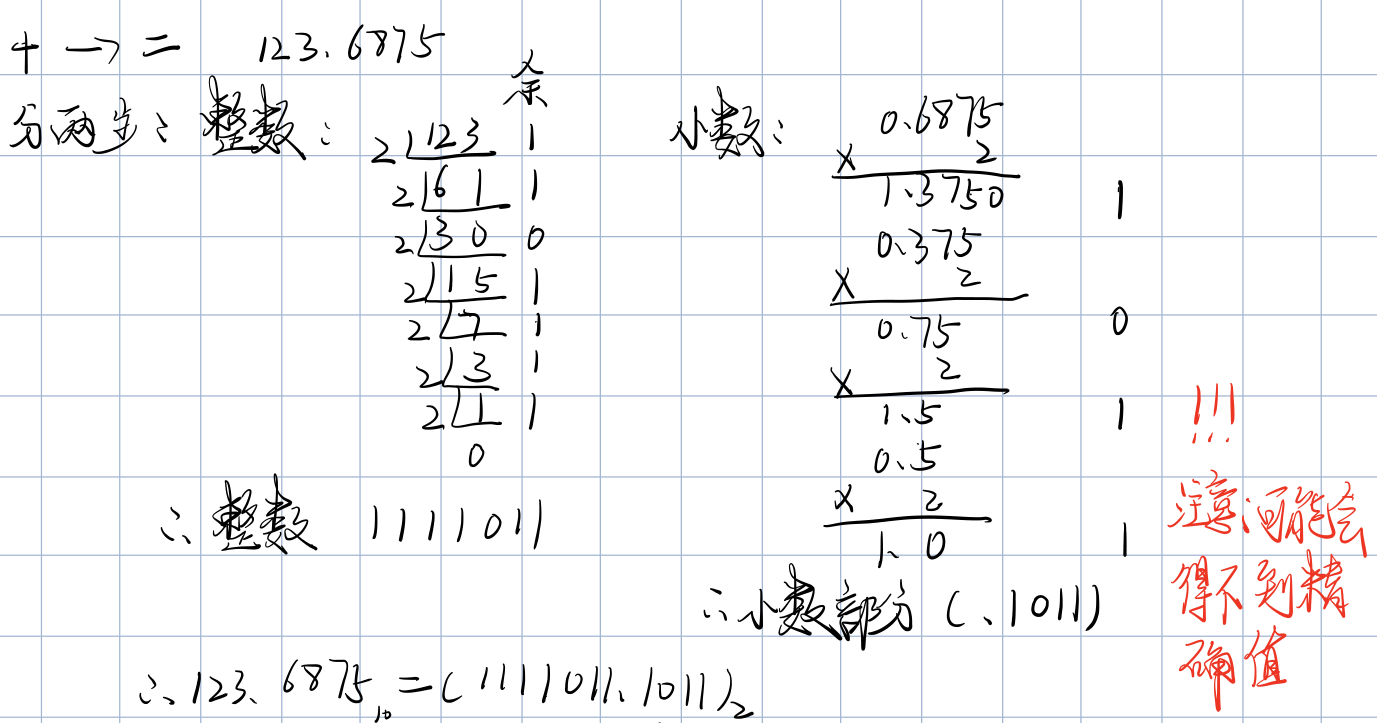 十 → 二 123.6875
分两步: 整数:
余
2 123 1
2 61 1
2 30 0
2 15 1
2 7 1
2 3 1
2 1 1
0
∴ 整数 1111011
小数:
0.6875
× 2
1.3750 1
0.375
× 2
0.75 0
× 2
1.5 1
0.5
× 2
1.0 1
∴小数部分 (.1011)
!!!
注意:可能会
得不到精
确值
∴123.6875₁₀ = (1111011.1011)₂